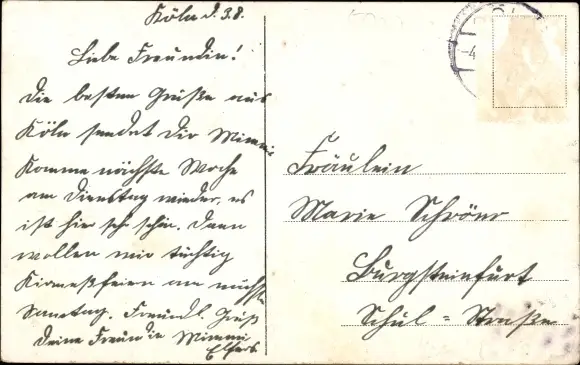 Köln d. 3.8.
Liebe Freundin!
Die besten Grüße aus
Köln sendet dir Mimmi
Komme nächste Woche
am Dienstag wieder, es
ist hier sehr schön. Dann
wollen wir tüchtig
Kirmeßfeiern am nächste
Sonntag. Freundl. Gruß
Deine Freundin Mimmi
Elfers
Fräulein
Marie Schröer
Burgsteinfurt
Schul=Straße